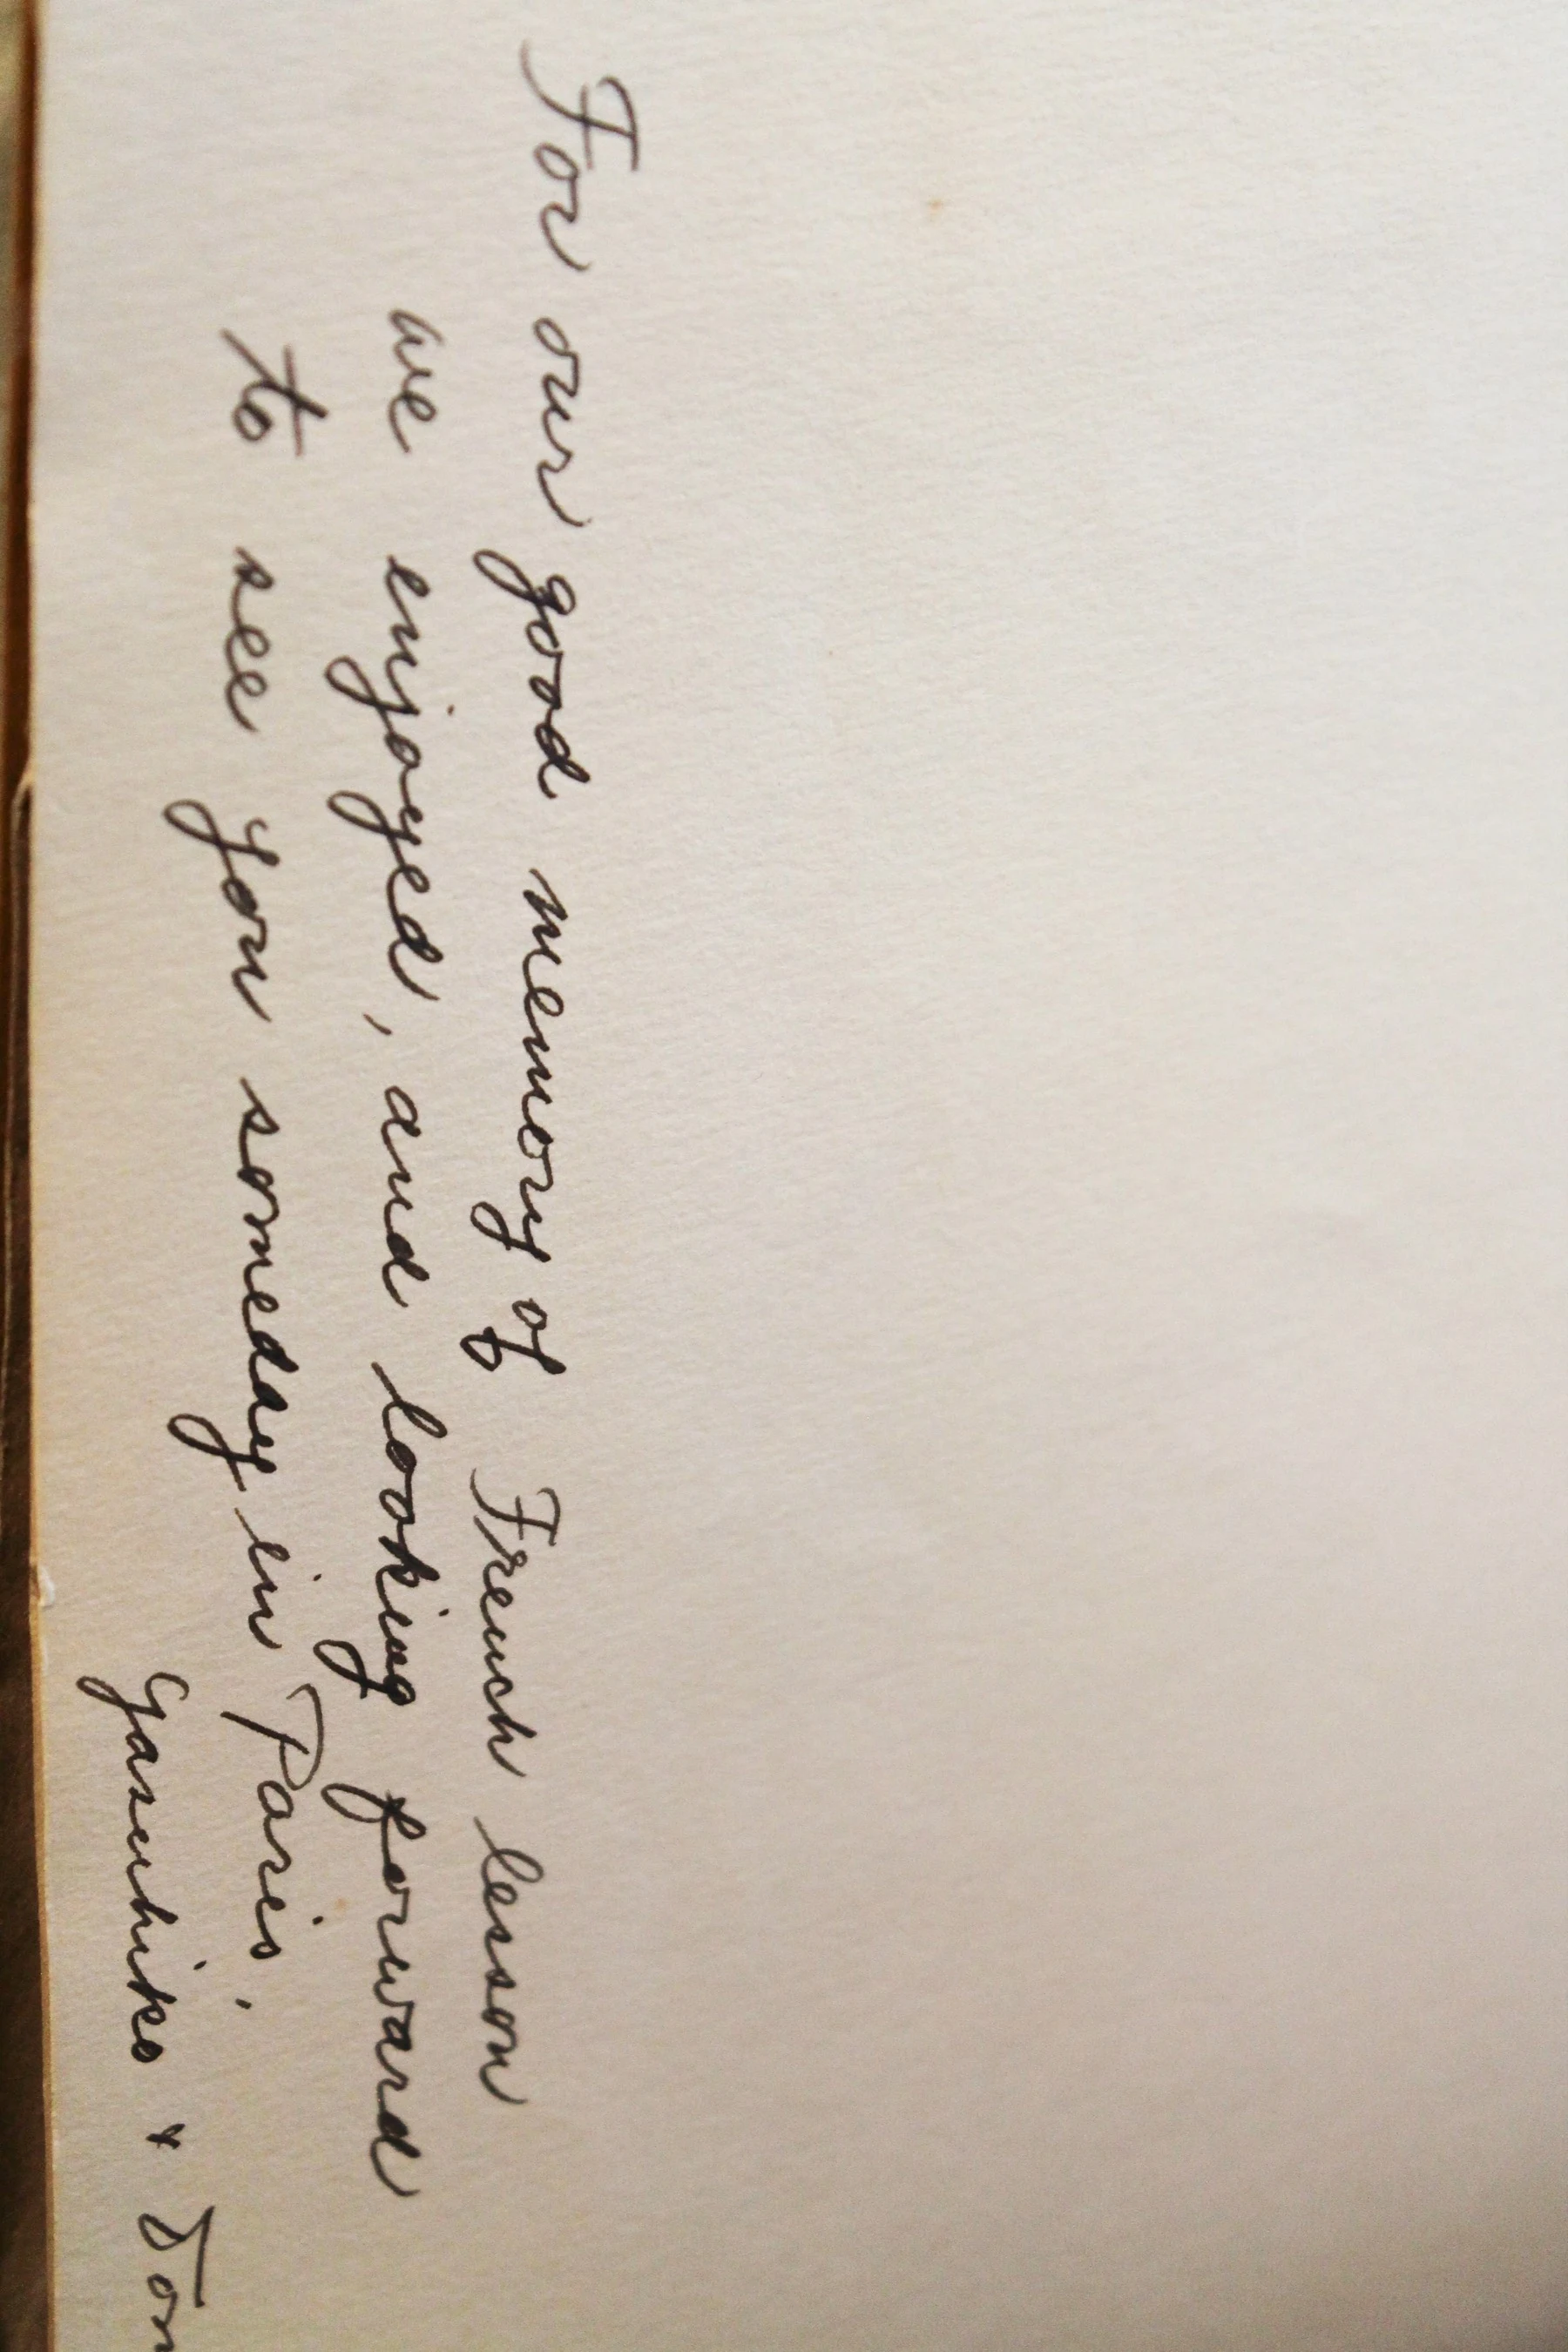 For our good memory of French lesson
we enjoyed, and looking forward
to see you someday in Paris.
Yasuhiko &